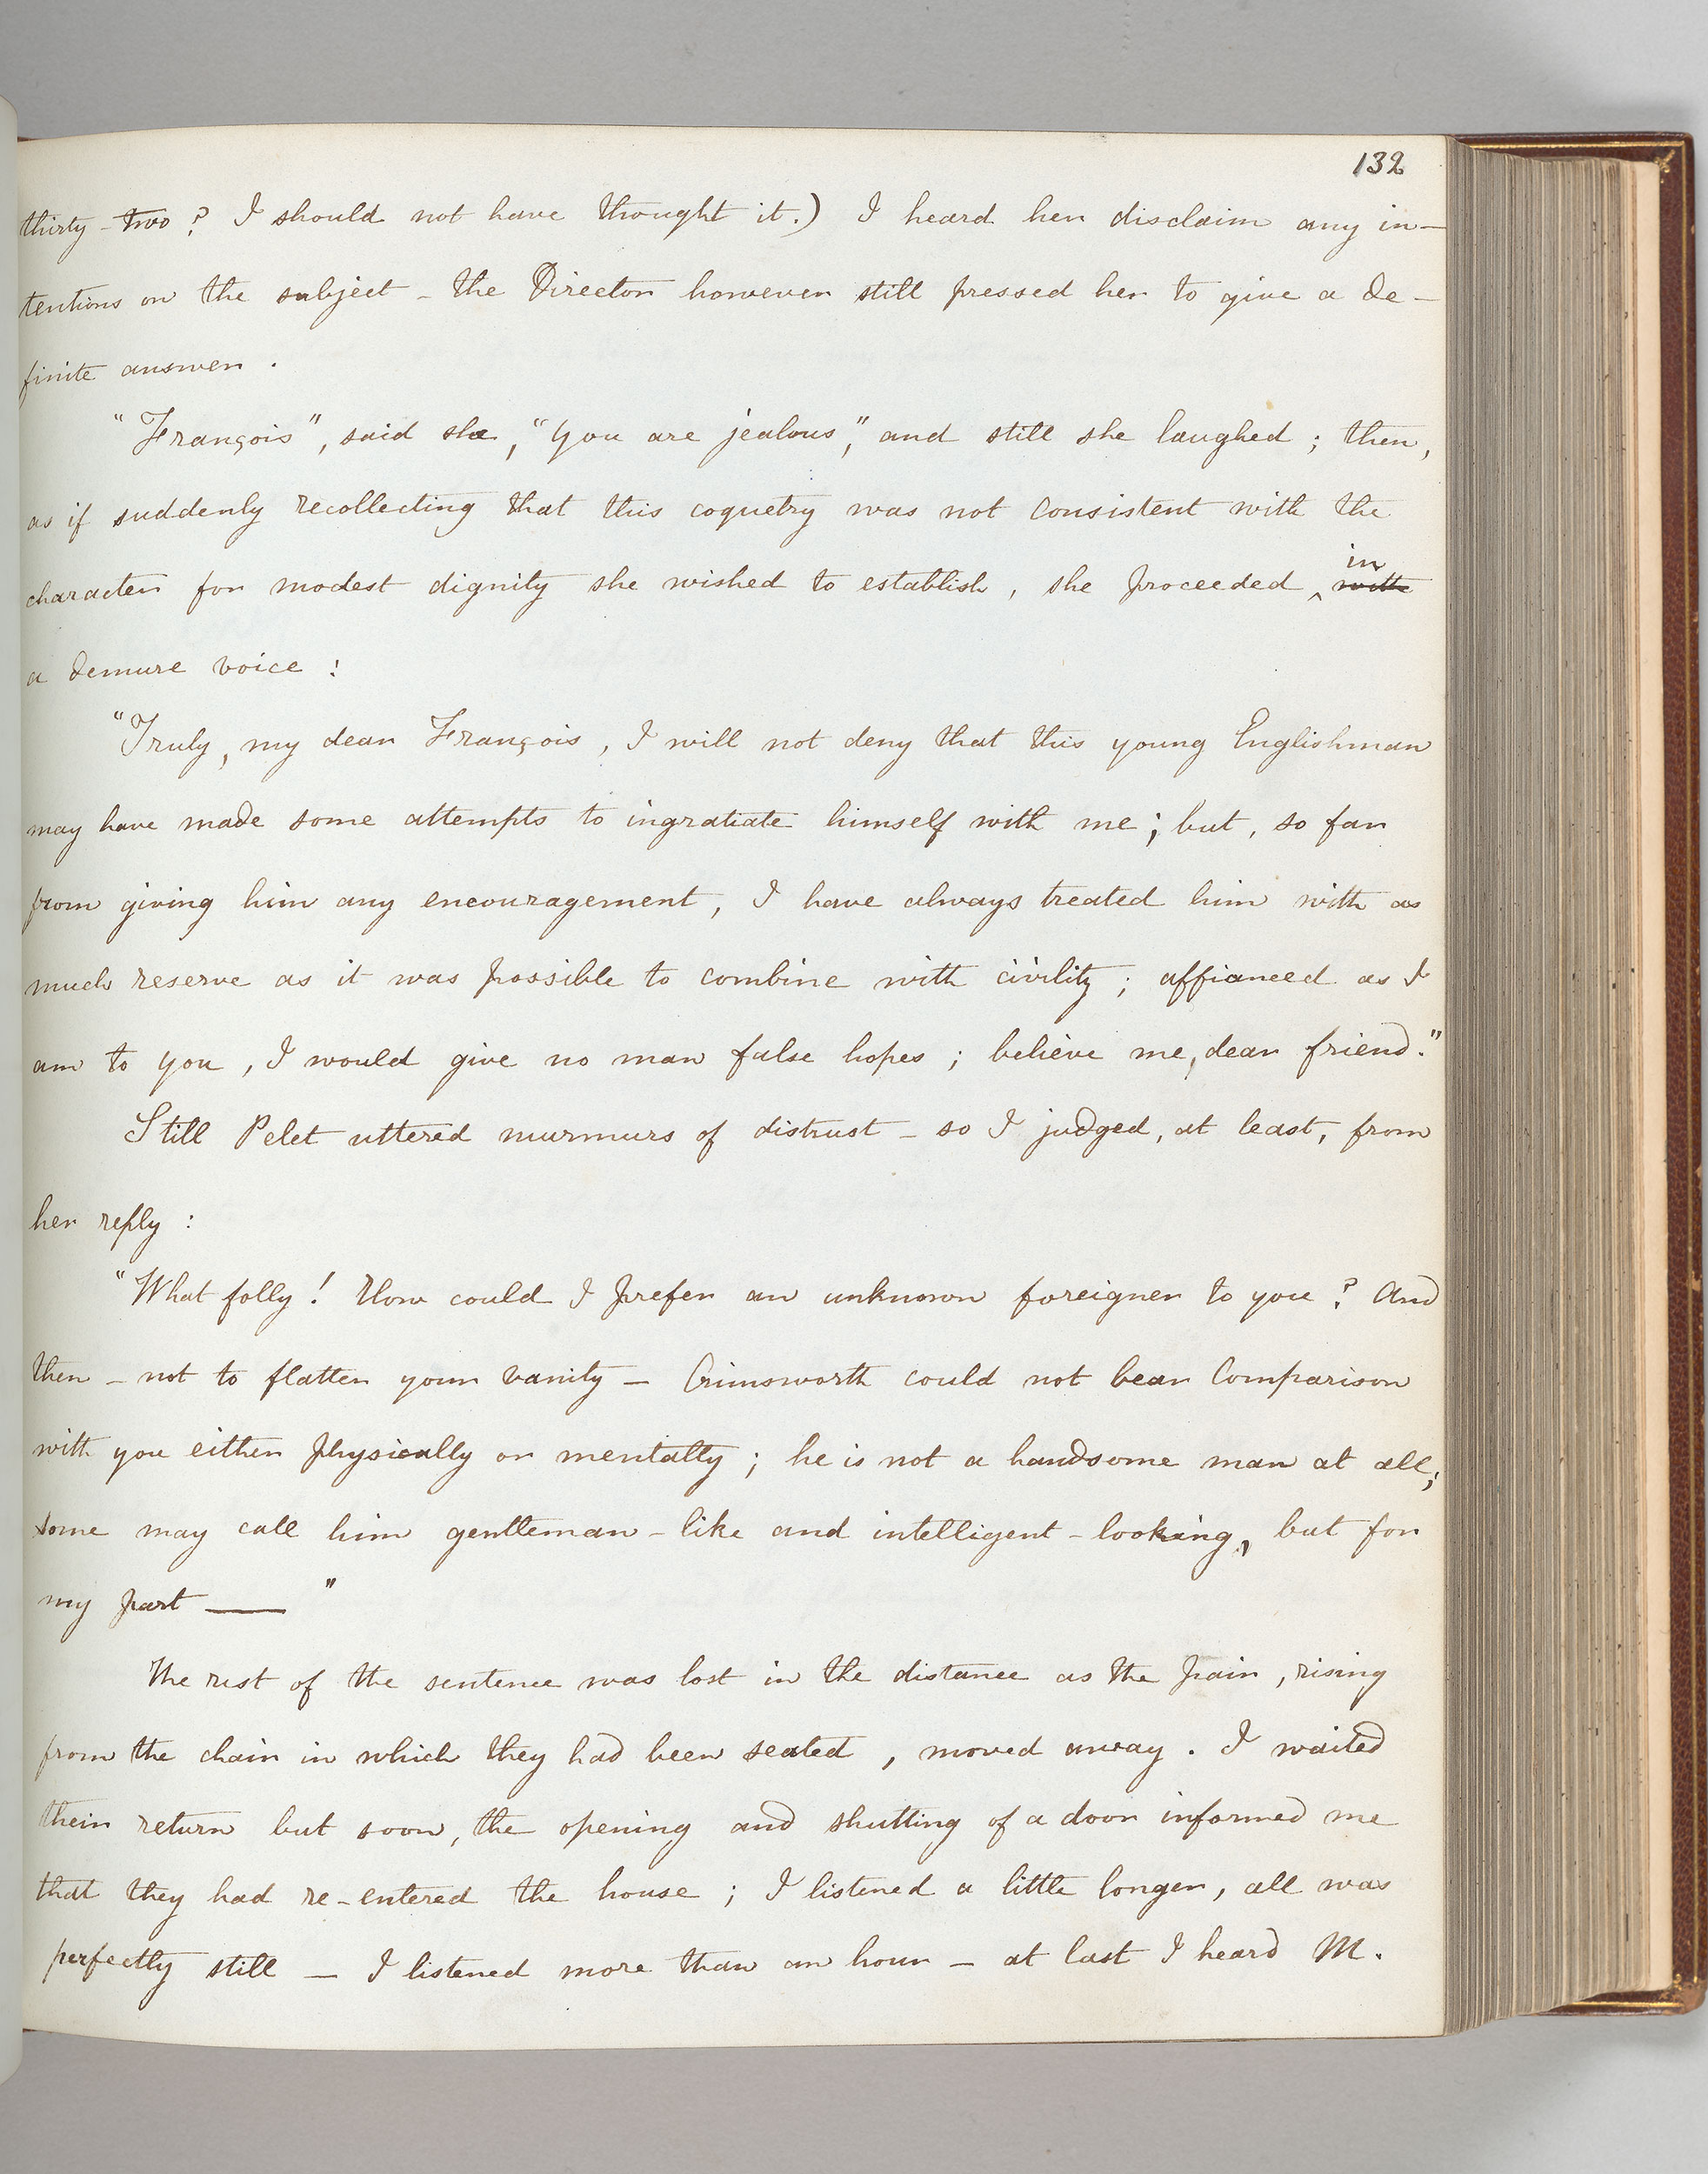 132
thirty-two? I should not have thought it.) I heard her disclaim any in-
tentions on the subject - the Director however still pressed her to give a de-
finite answer.
"François", said she, "you are jealous," and still she laughed; then,
as if suddenly recollecting that this coquetry was not consistent with the
character for modest dignity she wished to establish, she proceeded ^ in with
a demure voice:
"Truly, my dear François, I will not deny that this young Englishman
may have made some attempts to ingratiate himself with me; but, so far
from giving him any encouragement, I have always treated him with as
much reserve as it was possible to combine with civility; affianced as I
am to you, I would give no man false hopes; believe me, dear friend."
Still Pelet uttered murmurs of distrust - so I judged, at least, from
her reply:
"What folly! How could I prefer an unknown foreigner to you? And
then - not to flatter your vanity - Crimsworth could not bear Comparison
with you either physically or mentally; he is not a handsome man at all;
some may call him gentleman-like and intelligent-looking, but for
my part —— "
The rest of the sentence was lost in the distance as the pair, rising
from the chair in which they had been seated, moved away. I waited
their return but soon, the opening and shutting of a door informed me
that they had re-entered the house; I listened a little longer, all was
perfectly still — I listened more than an hour - at last I heard M.